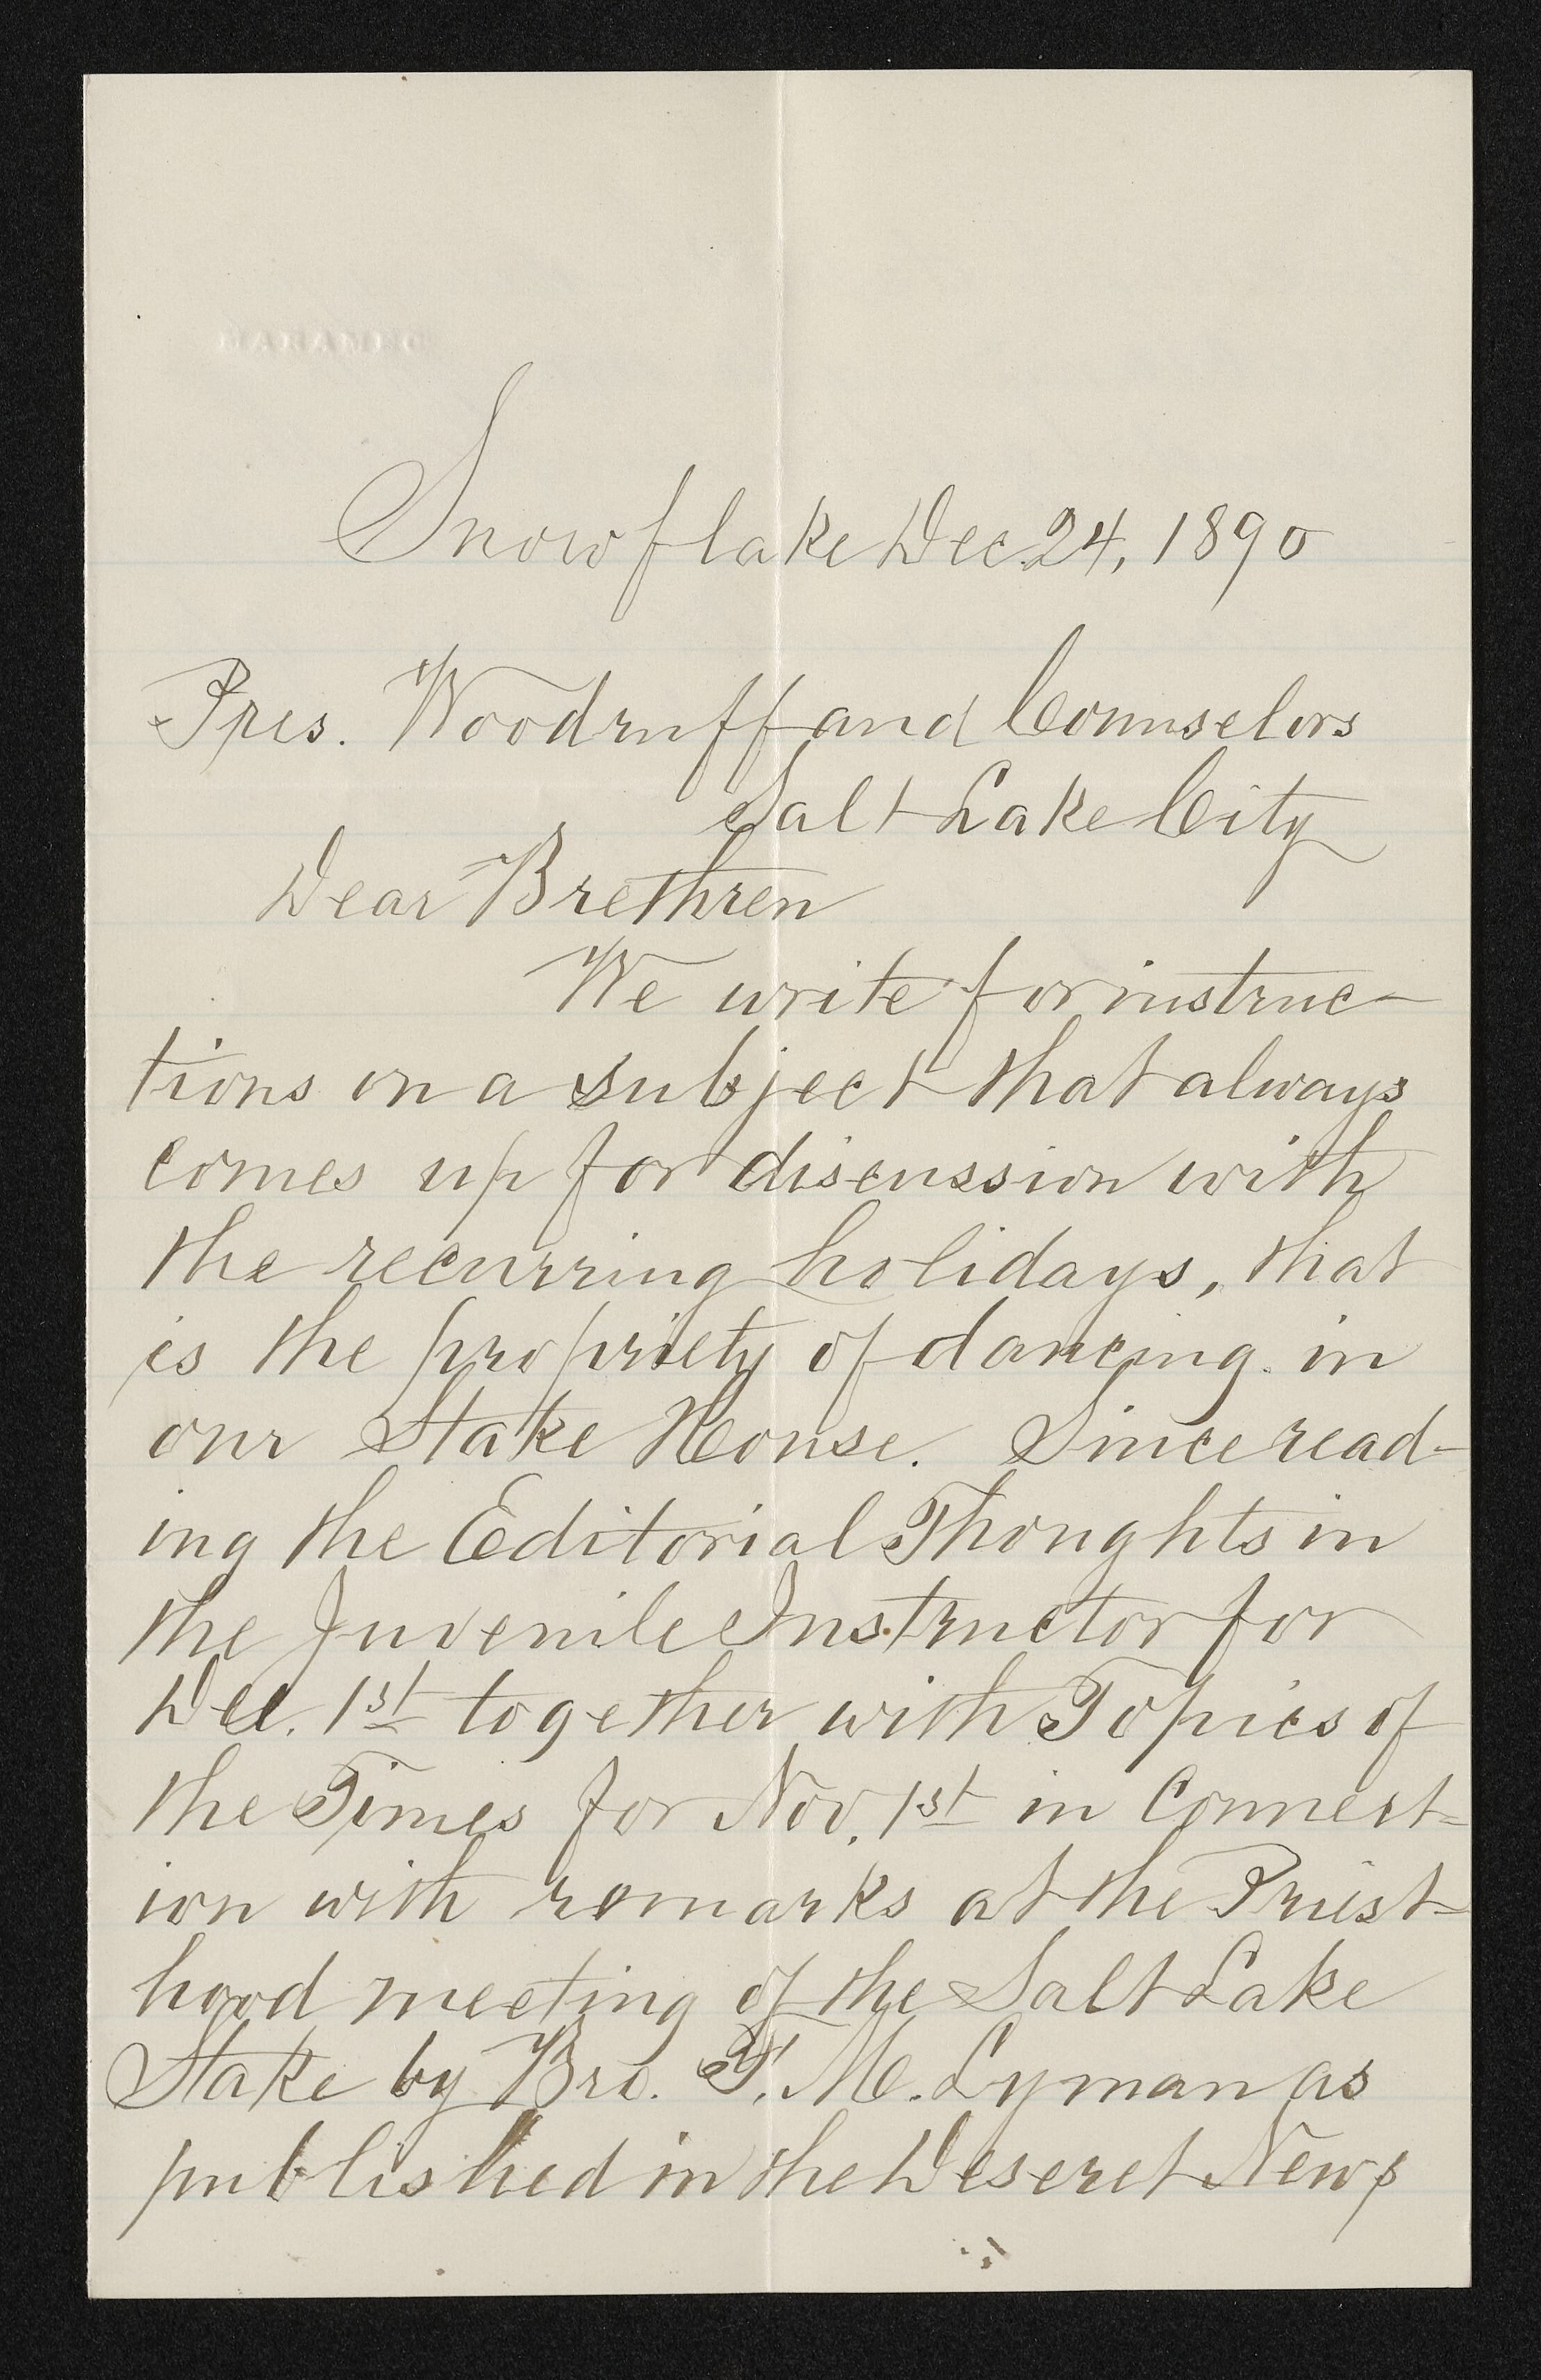 MARAMEC
Snowflake Dec. 24, 1890
Pres. Woodruff and Counselors
Salt Lake City
Dear Brethren
We write for instruc-
tions on a subject that always
comes up for discussion with
the recurring holidays, that
is the propriety of dancing in
our Stake House. Since read-
ing the Editorial Thoughts in
the Juvenile Instructor for
Dec. 1st together with Topics of
the Times for Nov. 1st in Connect-
ion with remarks at the Priest-
hood meeting of the Salt Lake
Stake by Bro. F. M. Lyman as
published in the Deseret News